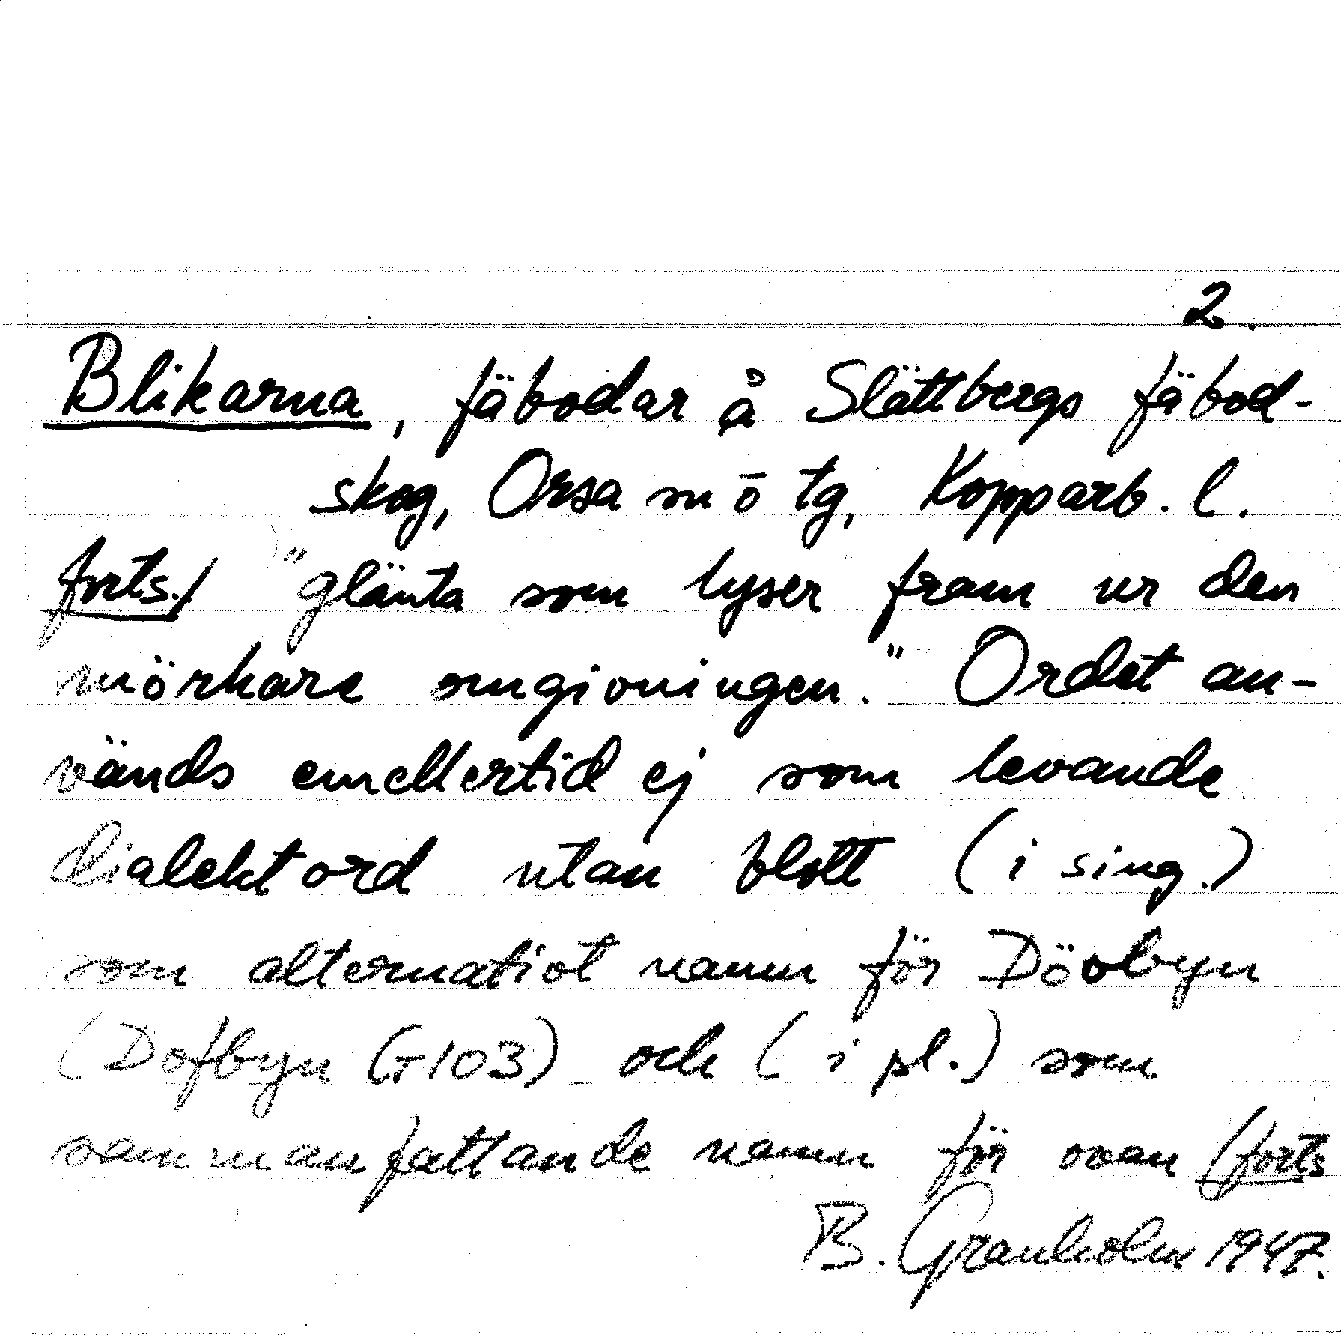 2.
Blikarna, fäbodar å Slättbergs fäbod-
skog, Orsa sn ö tg, Kopparb. l.
forts./ "glänta som lyser fram ur den
mörkare omgivningen." Ordet an-
vänds emellertid ej som levande
dialektord utan blott (i sing.)
som alternativt namn för Dövbyn
(Dofbyn (T103) och (i pl.) som
sammanfattande namn för ovan /forts
B. Granholm 1947.